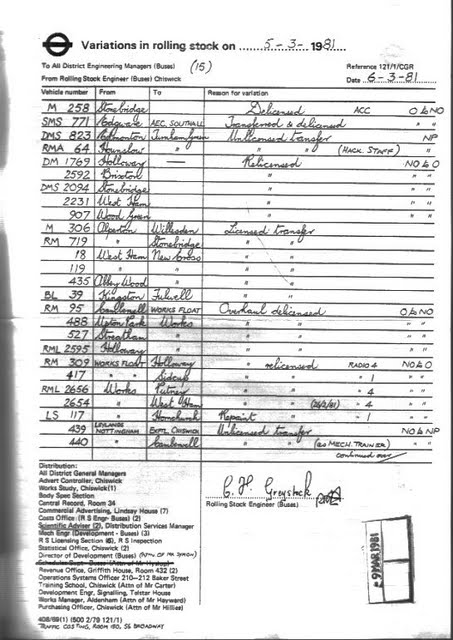 Variations in rolling stock on 5-3-1981.
To All District Engineering Managers (Buses) (15) Reference 121/1/CGR
From Rolling Stock Engineer (Buses) Chiswick Date 6-3-81
Vehicle number From To Reason for variation
M 258 Stonebridge Delicensed ACC O to NO
SMS 771 Edgware AEC, SOUTHALL Transferred & delicensed " "
DMS 823 Edmonton Turnham Green Unlicensed transfer NP
RMA 64 Hounslow " " " (HACK. STAFF) "
DM 1769 Holloway — Relicensed NO to O
2592 Brixton " " "
DMS 2094 Stonebridge " " "
2231 West Ham " " "
907 Wood Green " " "
M 306 Alperton Willesden Licensed transfer
RM 719 " Stonebridge " "
18 West Ham New Cross " "
119 " " " "
435 Abbey Wood " "
BL 39 Kingston Fulwell " "
RM 95 Camberwell WORKS FLOAT Overhaul delicensed O to NO
488 Upton Park Works " " " "
527 Streatham " " " " "
RML 2595 Holloway " " " " "
RM 309 WORKS FLOAT Holloway " relicensed RADIO 4 NO to O
417 " Sidcup " " " 1 " "
RML 2656 Works Putney " " " 4 " "
2654 " West Ham " " (26/2/81) " 4 " "
LS 117 " Hornchurch Repaint " " 1 " "
439 LEYLANDS NOTTINGHAM EXPTL CHISWICK Unlicensed transfer NO to NP
440 " Camberwell " " (as MECH. TRAINER) " "
continued over
Distribution:
All District General Managers
Advert Controller, Chiswick
Works Study, Chiswick(1)
Body Spec Section
Central Record, Room 34
Commercial Advertising, Lindsay House (7)
Costs Office (R S Engr- Buses) (2)
Scientific Adviser (2), Distribution Services Manager
Mech Engr (Development - Buses) (3)
R S Licensing Section (6), R S Inspection
Statistical Office, Chiswick (2)
Director of Development (Buses)
Schedules Dept - Buses (Attn of Mr Hyslop)
Revenue Office, Griffith House, Room 432 (2)
Operations Systems Officer 210—212 Baker Street
Training School, Chiswick (Attn of Mr Carter)
Development Engr, Signalling, Telstar House
Works Manager, Aldenham (Attn of Mr Hayward)
Purchasing Officer, Chiswick (Attn of Mr Hillies)
Rolling Stock Engineer (Buses)
-9 MAR 1981
408/69(1) (500 2/79 121/1)
TRAFFIC COSTING, ROOM 130, 55 BROADWAY